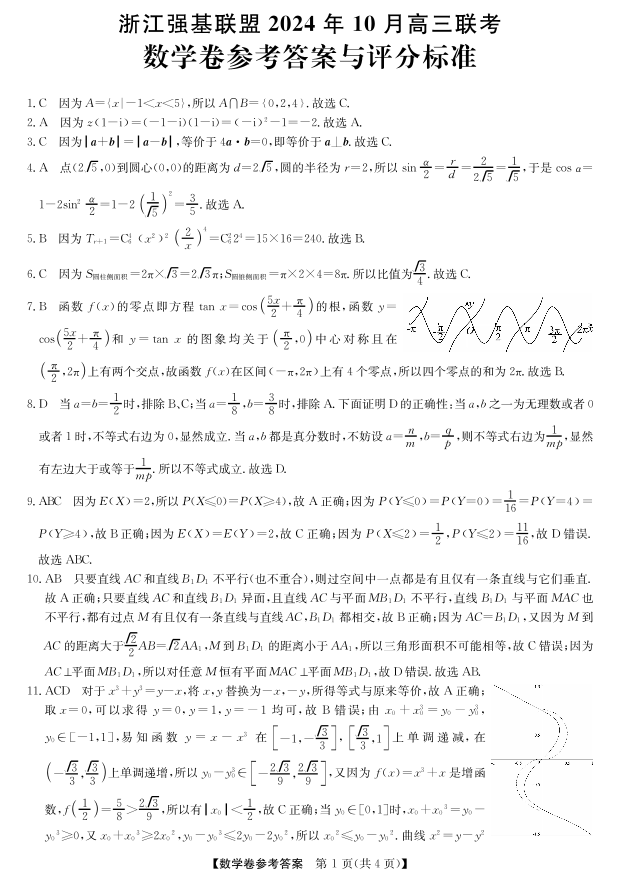 浙江强基联盟 2024 年 10 月高三联考
数学卷参考答案与评分标准
1. C 因为 A={x|-1<x<5},所以 A∩B={0,2,4}. 故选 C.
2. A 因为 z(1-i)=(-1-i)(1-i)=(-i)²-1=-2. 故选 A.
3. C 因为|a+b|=|a-b|,等价于 4a·b=0,即等价于 a⊥b. 故选 C.
4. A 点(2√5,0)到圆心(0,0)的距离为 d=2√5,圆的半径为 r=2,所以 sin α/2=r/d=2/(2√5)=1/√5,于是 cos α=
1-2sin² α/2=1-2(1/√5)²=3/5. 故选 A.
5. B 因为 Tᵣ₊₁=C₆⁴(x²)²(2/x)⁴=C₆²2⁴=15×16=240. 故选 B.
6. C 因为 S圆柱侧面积=2π×√3=2√3π;S圆锥侧面积=π×2×4=8π. 所以比值为√3/4. 故选 C.
7. B 函数 f(x)的零点即方程 tan x=cos(5x/2+π/4)的根,函数 y=
cos(5x/2+π/4)和 y=tan x 的图象均关于(π/2,0)中心对称且在
(π/2,2π)上有两个交点,故函数 f(x)在区间(-π,2π)上有 4 个零点,所以四个零点的和为 2π. 故选 B.
8. D 当 a=b=1/2时,排除 B、C;当 a=1/8,b=3/8时,排除 A. 下面证明 D 的正确性:当 a,b 之一为无理数或者 0
或者 1 时,不等式右边为 0,显然成立. 当 a,b 都是真分数时,不妨设 a=n/m,b=q/p,则不等式右边为1/mp,显然
有左边大于或等于1/mp. 所以不等式成立. 故选 D.
9. ABC 因为 E(X)=2,所以 P(X≤0)=P(X≥4),故 A 正确;因为 P(Y≤0)=P(Y=0)=1/16=P(Y=4)=
P(Y≥4),故 B 正确;因为 E(X)=E(Y)=2,故 C 正确;因为 P(X≤2)=1/2,P(Y≤2)=11/16,故 D 错误.
故选 ABC.
10. AB 只要直线 AC 和直线 B₁D₁ 不平行(也不重合),则过空间中一点都是有且仅有一条直线与它们垂直.
故 A 正确;只要直线 AC 和直线 B₁D₁ 异面,且直线 AC 与平面 MB₁D₁ 不平行,直线 B₁D₁ 与平面 MAC 也
不平行,都有过点 M 有且仅有一条直线与直线 AC,B₁D₁ 都相交,故 B 正确;因为 AC=B₁D₁,又因为 M 到
AC 的距离大于√2/2AB=√2AA₁,M 到 B₁D₁ 的距离小于 AA₁,所以三角形面积不可能相等,故 C 错误;因为
AC⊥平面 MB₁D₁,所以对任意 M 恒有平面 MAC⊥平面 MB₁D₁,故 D 错误. 故选 AB.
11. ACD 对于 x³+y³=y-x,将 x,y 替换为-x,-y,所得等式与原来等价,故 A 正确;
取 x=0,可以求得 y=0,y=1,y=-1 均可,故 B 错误;由 x₀+x₀³=y₀-y₀³,
y₀∈[-1,1],易知函数 y=x-x³ 在[-1,-√3/3],[√3/3,1]上单调递减,在
(-√3/3,√3/3)上单调递增,所以 y₀-y₀³∈[-2√3/9,2√3/9],又因为 f(x)=x³+x 是增函
数,f(1/2)=5/8>2√3/9,所以有|x₀|<1/2,故 C 正确;当 y₀∈[0,1]时,x₀+x₀³=y₀-
y₀³≥0,又 x₀+x₀³≥2x₀²,y₀-y₀³≤2y₀-2y₀²,所以 x₀²≤y₀-y₀². 曲线 x²=y-y²
【数学卷参考答案 第 1 页(共 4 页)】